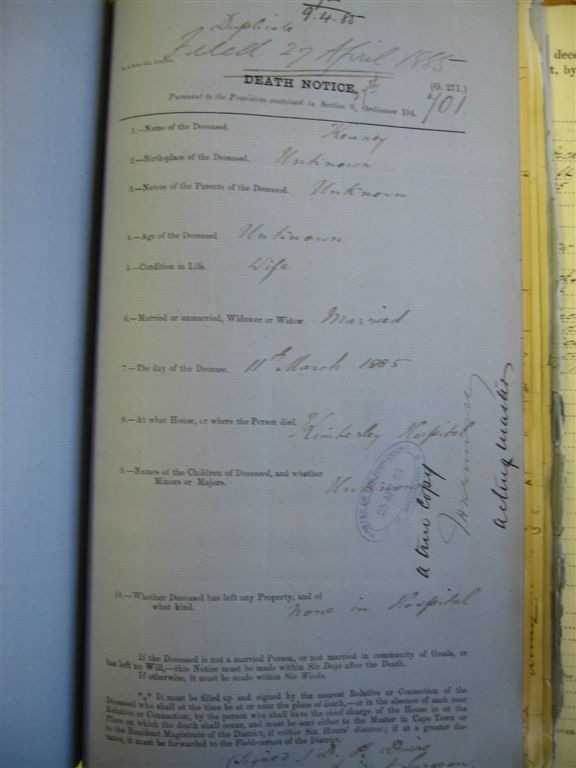 9.4.85
Duplicate
Filed 27 April 1885
DEATH NOTICE,
(G. 271.)
Pursuant to the Provisions contained in Section 9, Ordinance 104.
701.
1.—Name of the Deceased. Kenny
2.—Birth-place of the Deceased. Unknown
3.—Names of the Parents of the Deceased. Unknown
4.—Age of the Deceased. Unknown
5.—Condition in Life. Wife
6.—Married or unmarried, Widower or Widow. Married
7.—The day of the Decease. 11th March 1885
8.—At what House, or where the Person died. Kimberley Hospital
9.—Names of the Children of Deceased, and whether
Minors or Majors. Unknown
a true copy
acting master
10.—Whether Deceased has left any Property, and of
what kind. None in Hospital
If the Deceased is not a married Person, or not married in community of Goods, or
has left no Will,—this Notice must be made within Six Days after the Death.
If otherwise, it must be made within Six Weeks.
*** It must be filled up and signed by the nearest Relative or Connection of the
Deceased who shall at the time be at or near the place of death,—or in the absence of such near
Relative or Connection, by the person who shall have the chief charge of the House in or the
Place on which the death shall occur, and must be sent either to the Master in Cape Town or
to the Resident Magistrate of the District, if within Six Hours' distance; if at a greater dis-
tance, it must be forwarded to the Field-cornet of the District.
(Signed)